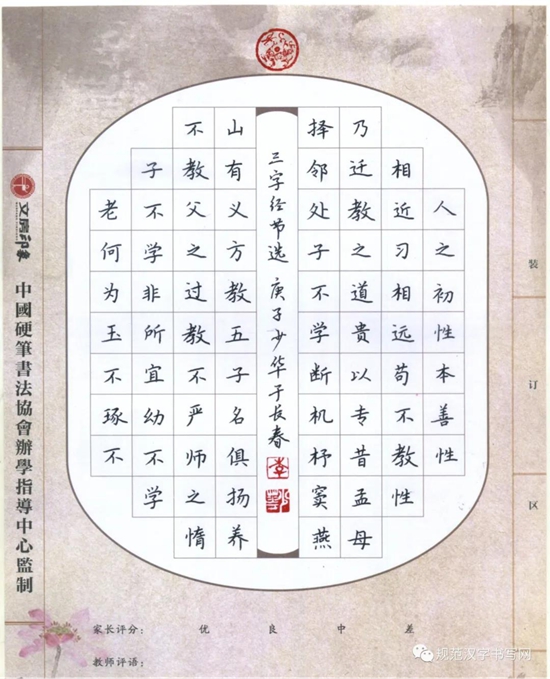 裝 订 区
人之初性本善性
相近习相远苟不教性
乃迁教之道贵以专昔孟母
择邻处子不学断机杼窦燕
三字经节选 庚子少华于长春
山有义方教五子名俱扬养
不教父之过教不严师之惰
子不学非所宜幼不学
老何为玉不琢不
中國硬筆書法協會辦學指導中心監制
家长评分： 优 良 中 差
教师评语：
规范汉字书写网